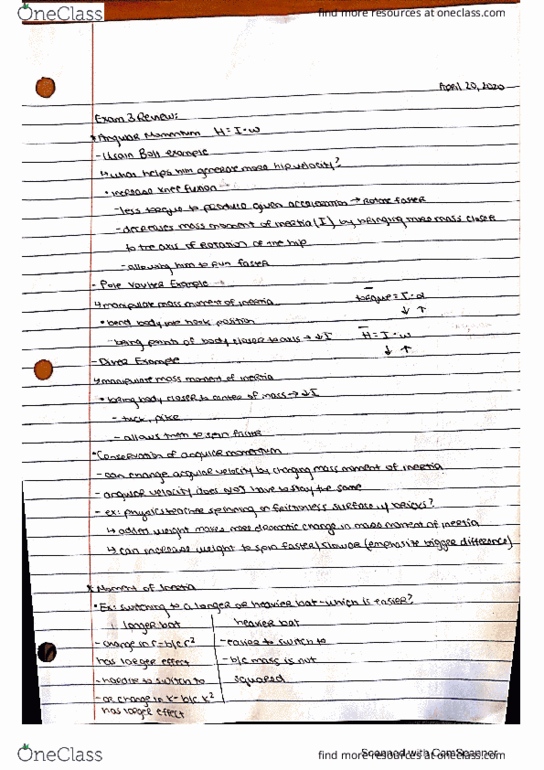 OneClass
find more resources at oneclass.com
April 20, 2020
Exam 3 Review:
*Angular Momentum H=I·w
-Usain Bolt example
↳what helps him generate more hip velocity?
•increase knee flexion
-less torque to produce given acceleration → rotate faster
-decreases mass moment of inertia (I) by bringing more mass closer
to the axis of rotation of the hip
-allowing him to run faster
-Pole Vaulter Example
↳manipulate mass moment of inertia
torque = I·α
↓ ↑
•bend body into hook position
-being points of body closer to axis → ↓I
H = I·w
↓ ↑
-Diver Example
↳manipulate mass moment of inertia
•bring body closer to center of mass → ↓I
-tuck, pike
-allows them to spin faster
•Conservation of angular momentum
-can change angular velocity by changing mass moment of inertia
-angular velocity does NOT have to stay the same
-ex: physics teacher spinning on frictionless surface w/ bricks?
↳adding weight makes more dramatic change in mass moment of inertia
↳can increase weight to spin faster/slower (emphasize bigger difference)
*Moment of Inertia
•Ex: switching to a longer or heavier bat-which is easier?
longer bat
heavier bat
-change in r-b/c r²
-easier to switch to
has larger effect
-b/c mass is not
-harder to switch to
squared
-or change in k-b/c k²
has larger effect
OneClass
find more resources at oneclass.com
Scanned with CamScanner